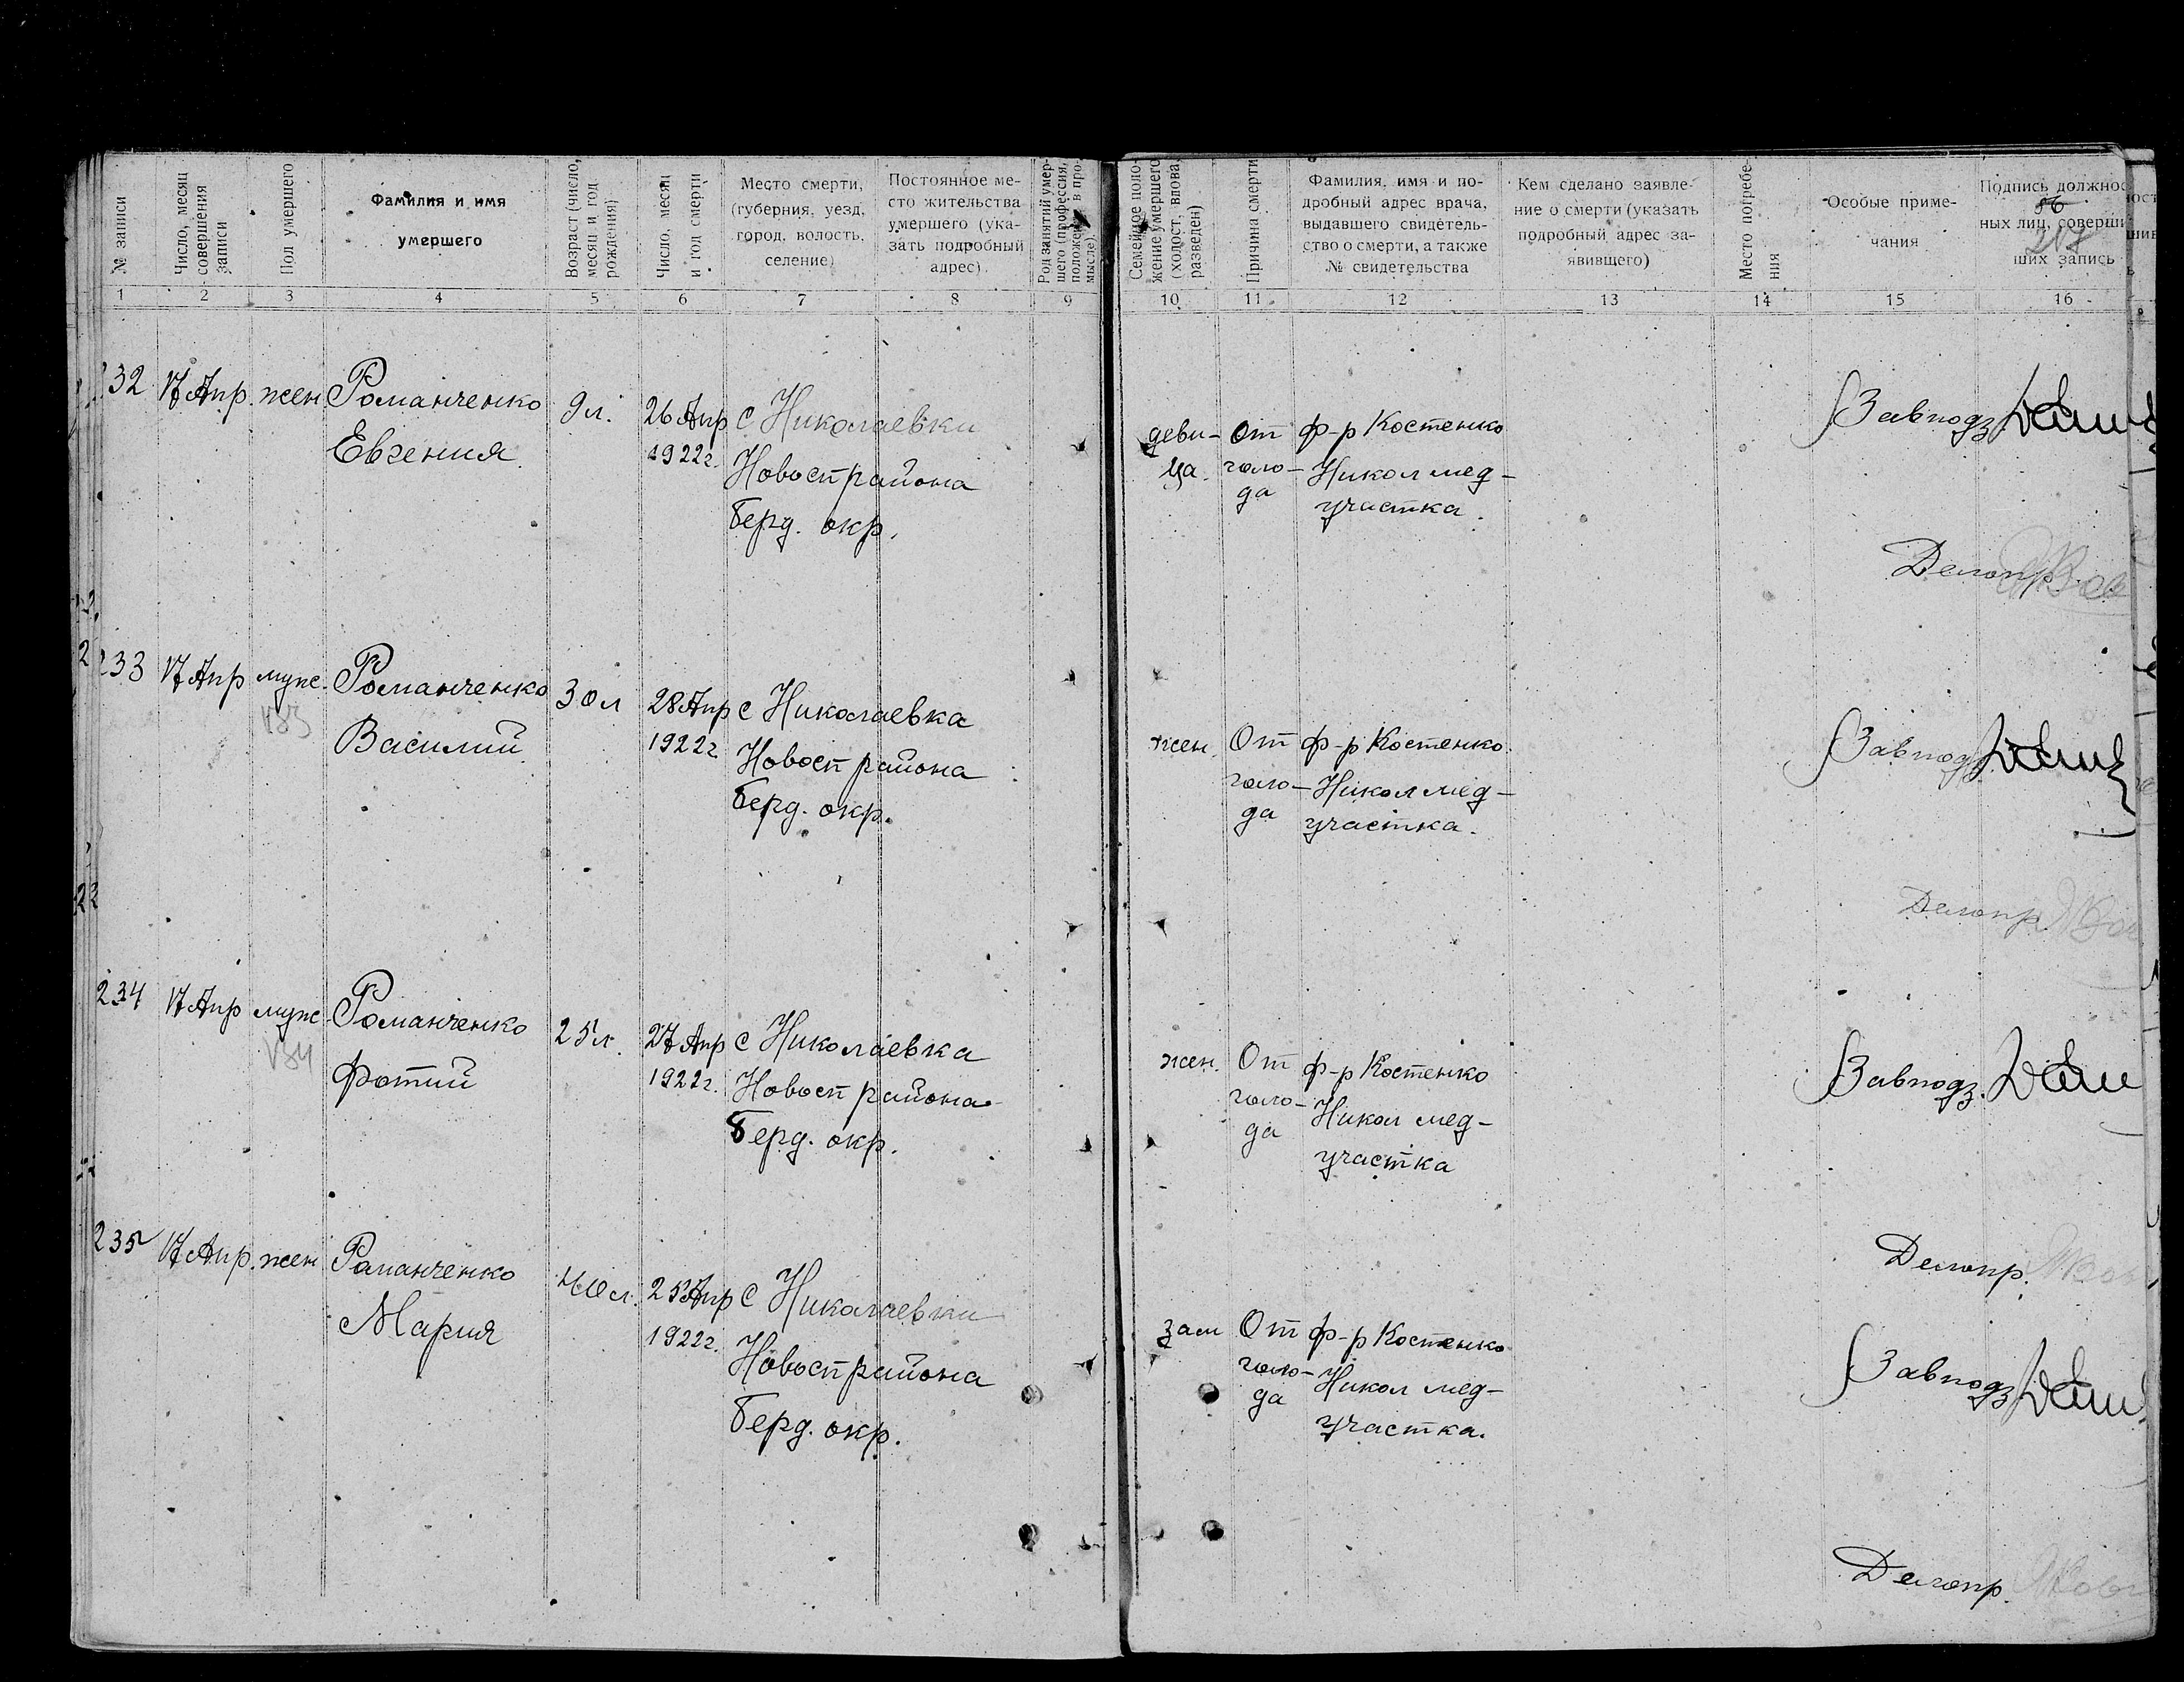 № записи
Число, месяц совершения записи
Пол умершего
Фамилия и имя умершего
Возраст (число, месяц и год рождения)
Число, месяц и год смерти
Место смерти, (губерния, уезд, город, волость, селение)
Постоянное место жительства умершего (указать подробный адрес).
Род занятий умершего (профессия, положение в промысле)
Семейное положение умершего (холост, вдова, разведен)
Причина смерти
Фамилия, имя и подробный адрес врача, выдавшего свидетельство о смерти, а также № свидетельства
Кем сделано заявление о смерти (указать подробный адрес заявившего)
Место погребения
Особые примечания
Подпись должностных лиц, совершивших запись
1 2 3 4 5 6 7 8 9 10 11 12 13 14 15 16
232 17 Апр. жен. Романченко 9 л. 26 Апр с Николаевки
Евгения 1922 г. Новосп района
Берд. окр.
деви- От ф-р Костенко Завподз
ца. голо- Никол мед-
да участка.
Делопр.
233 17 Апр муж. Романченко 30 л 28 Апр с Николаевка
Василий 1922 г Новосп района
Берд. окр.
жен. От ф-р Костенко Завподз
голо- Никол мед-
да участка.
Делопр
234 17 Апр муж Романченко 25 л. 27 Апр с Николаевка
Фотий 1922 г. Новосп района
Берд. окр.
жен. От ф-р Костенко Завподз.
голо- Никол мед-
да участка
Делопр.
235 17 Апр. жен Романченко 40 л. 25 Апр с Николаевки
Мария 1922 г. Новосп района
Берд. окр.
зам От ф-р Костенко Завподз
голо- Никол мед-
да участка.
Делопр.